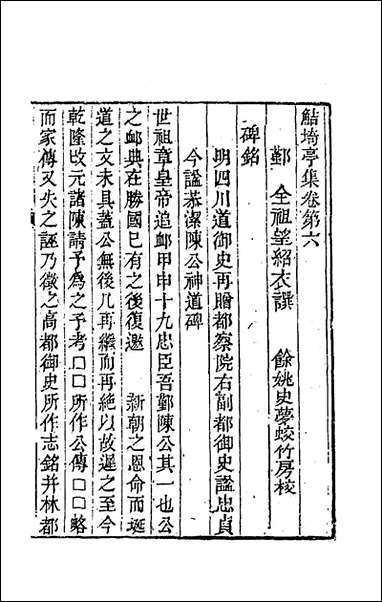 鮚埼亭集卷第六
鄞　全祖望紹衣譔　餘姚史夢蛟竹房校
碑銘
明四川道御史再贈都察院右副都御史諡忠貞
今諡恭潔陳公神道碑
世祖章皇帝追䘏甲申十九忠臣吾鄞陳公其一也公
之䘏典在勝國已有之後復邀　新朝之恩命而埏
道之文未具蓋公無後凡再繼而再絶以故遲之至今
乾隆改元諸陳請予爲之予考□□所作公傳□□略
而家傳又失之誣乃徵之高都御史所作志銘幷林都